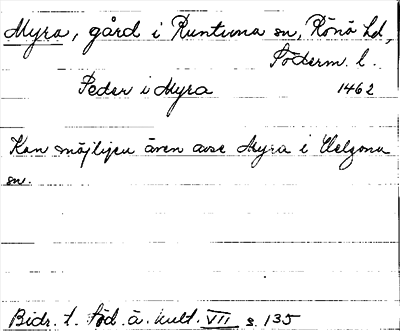 Myra, gård i Runtuna sn, Rönö hd,
Söderm. l.
Peder i Myra 1462
Kan möjligen även avse Myra i Helgona
sn.
Bidr. t. Söd. ä. kult. VII s. 135